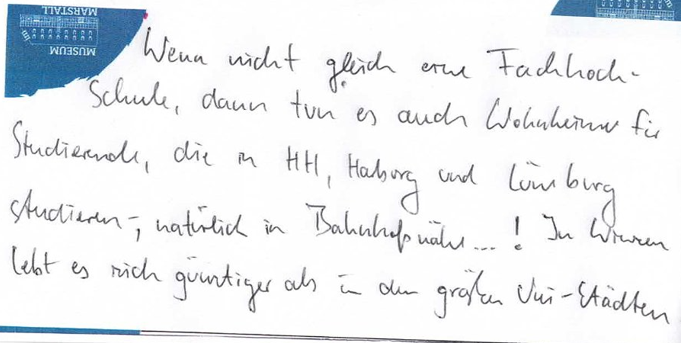 MUSEUM
MARSTALL
Wenn nicht gleich eine Fachhoch-
Schule, dann tun es auch Wohnheime für
Studierende, die in HH, Harburg und Lüneburg
studieren -, natürlich in Bahnhofsnähe...! In Winsen
lebt es sich günstiger als in den großen Uni-Städten